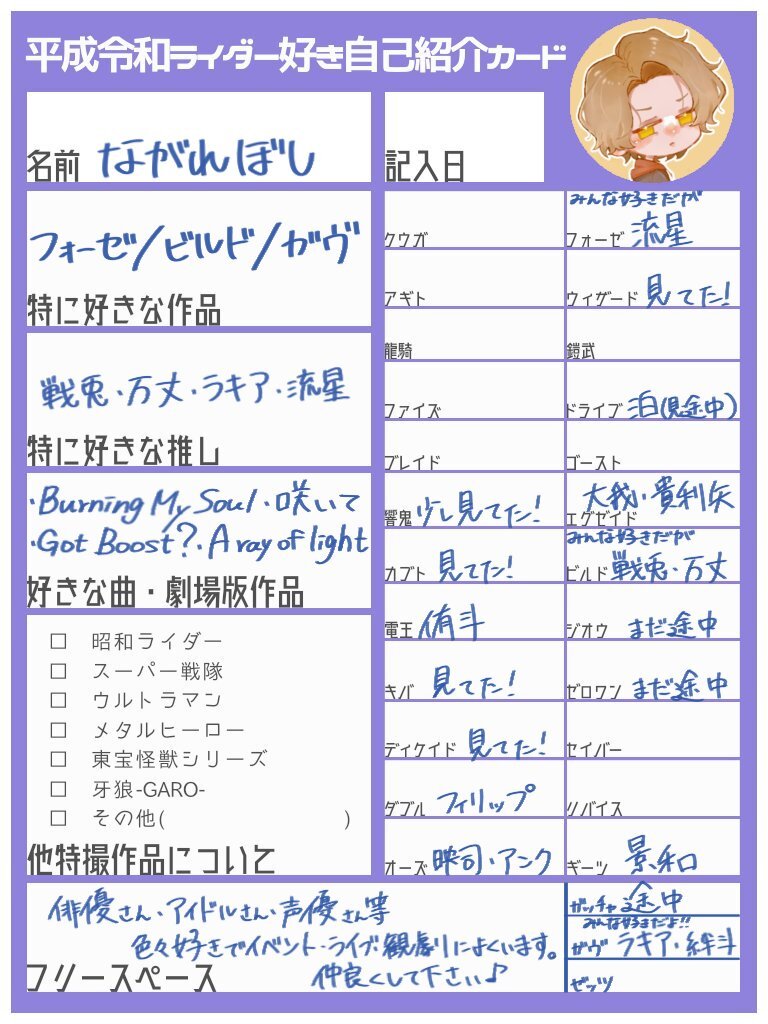 平成令和ライダー好き自己紹介カード
名前 ながれぼし
記入日
フォーゼ/ビルド/ガヴ
特に好きな作品
戦兎・万丈・ラキア・流星
特に好きな推し
・Burning My Soul・咲いて
・Got Boost?・A ray of light
好きな曲・劇場版作品
□ 昭和ライダー
□ スーパー戦隊
□ ウルトラマン
□ メタルヒーロー
□ 東宝怪獣シリーズ
□ 牙狼-GARO-
□ その他( )
他特撮作品について
クウガ
アギト
龍騎
ファイズ
ブレイド
響鬼 少し見てた!
カブト 見てた!
電王 侑斗
キバ 見てた!
ディケイド 見てた!
ダブル フィリップ
オーズ 映司・アンク
みんな好きだが
フォーゼ 流星
ウィザード 見てた!
鎧武
ドライブ 泊(見途中)
ゴースト
エグゼイド 大我・貴利矢
みんな好きだが
ビルド 戦兎・万丈
ジオウ まだ途中
ゼロワン まだ途中
セイバー
リバイス
ギーツ 景和
ガッチャ 途中
みんな好きだよ!!
ガヴ ラキア・絆斗
ゼッツ
俳優さん・アイドルさん・声優さん等
色々好きでイベント・ライブ・観劇によくいます。
仲良くして下さい♪
フリースペース